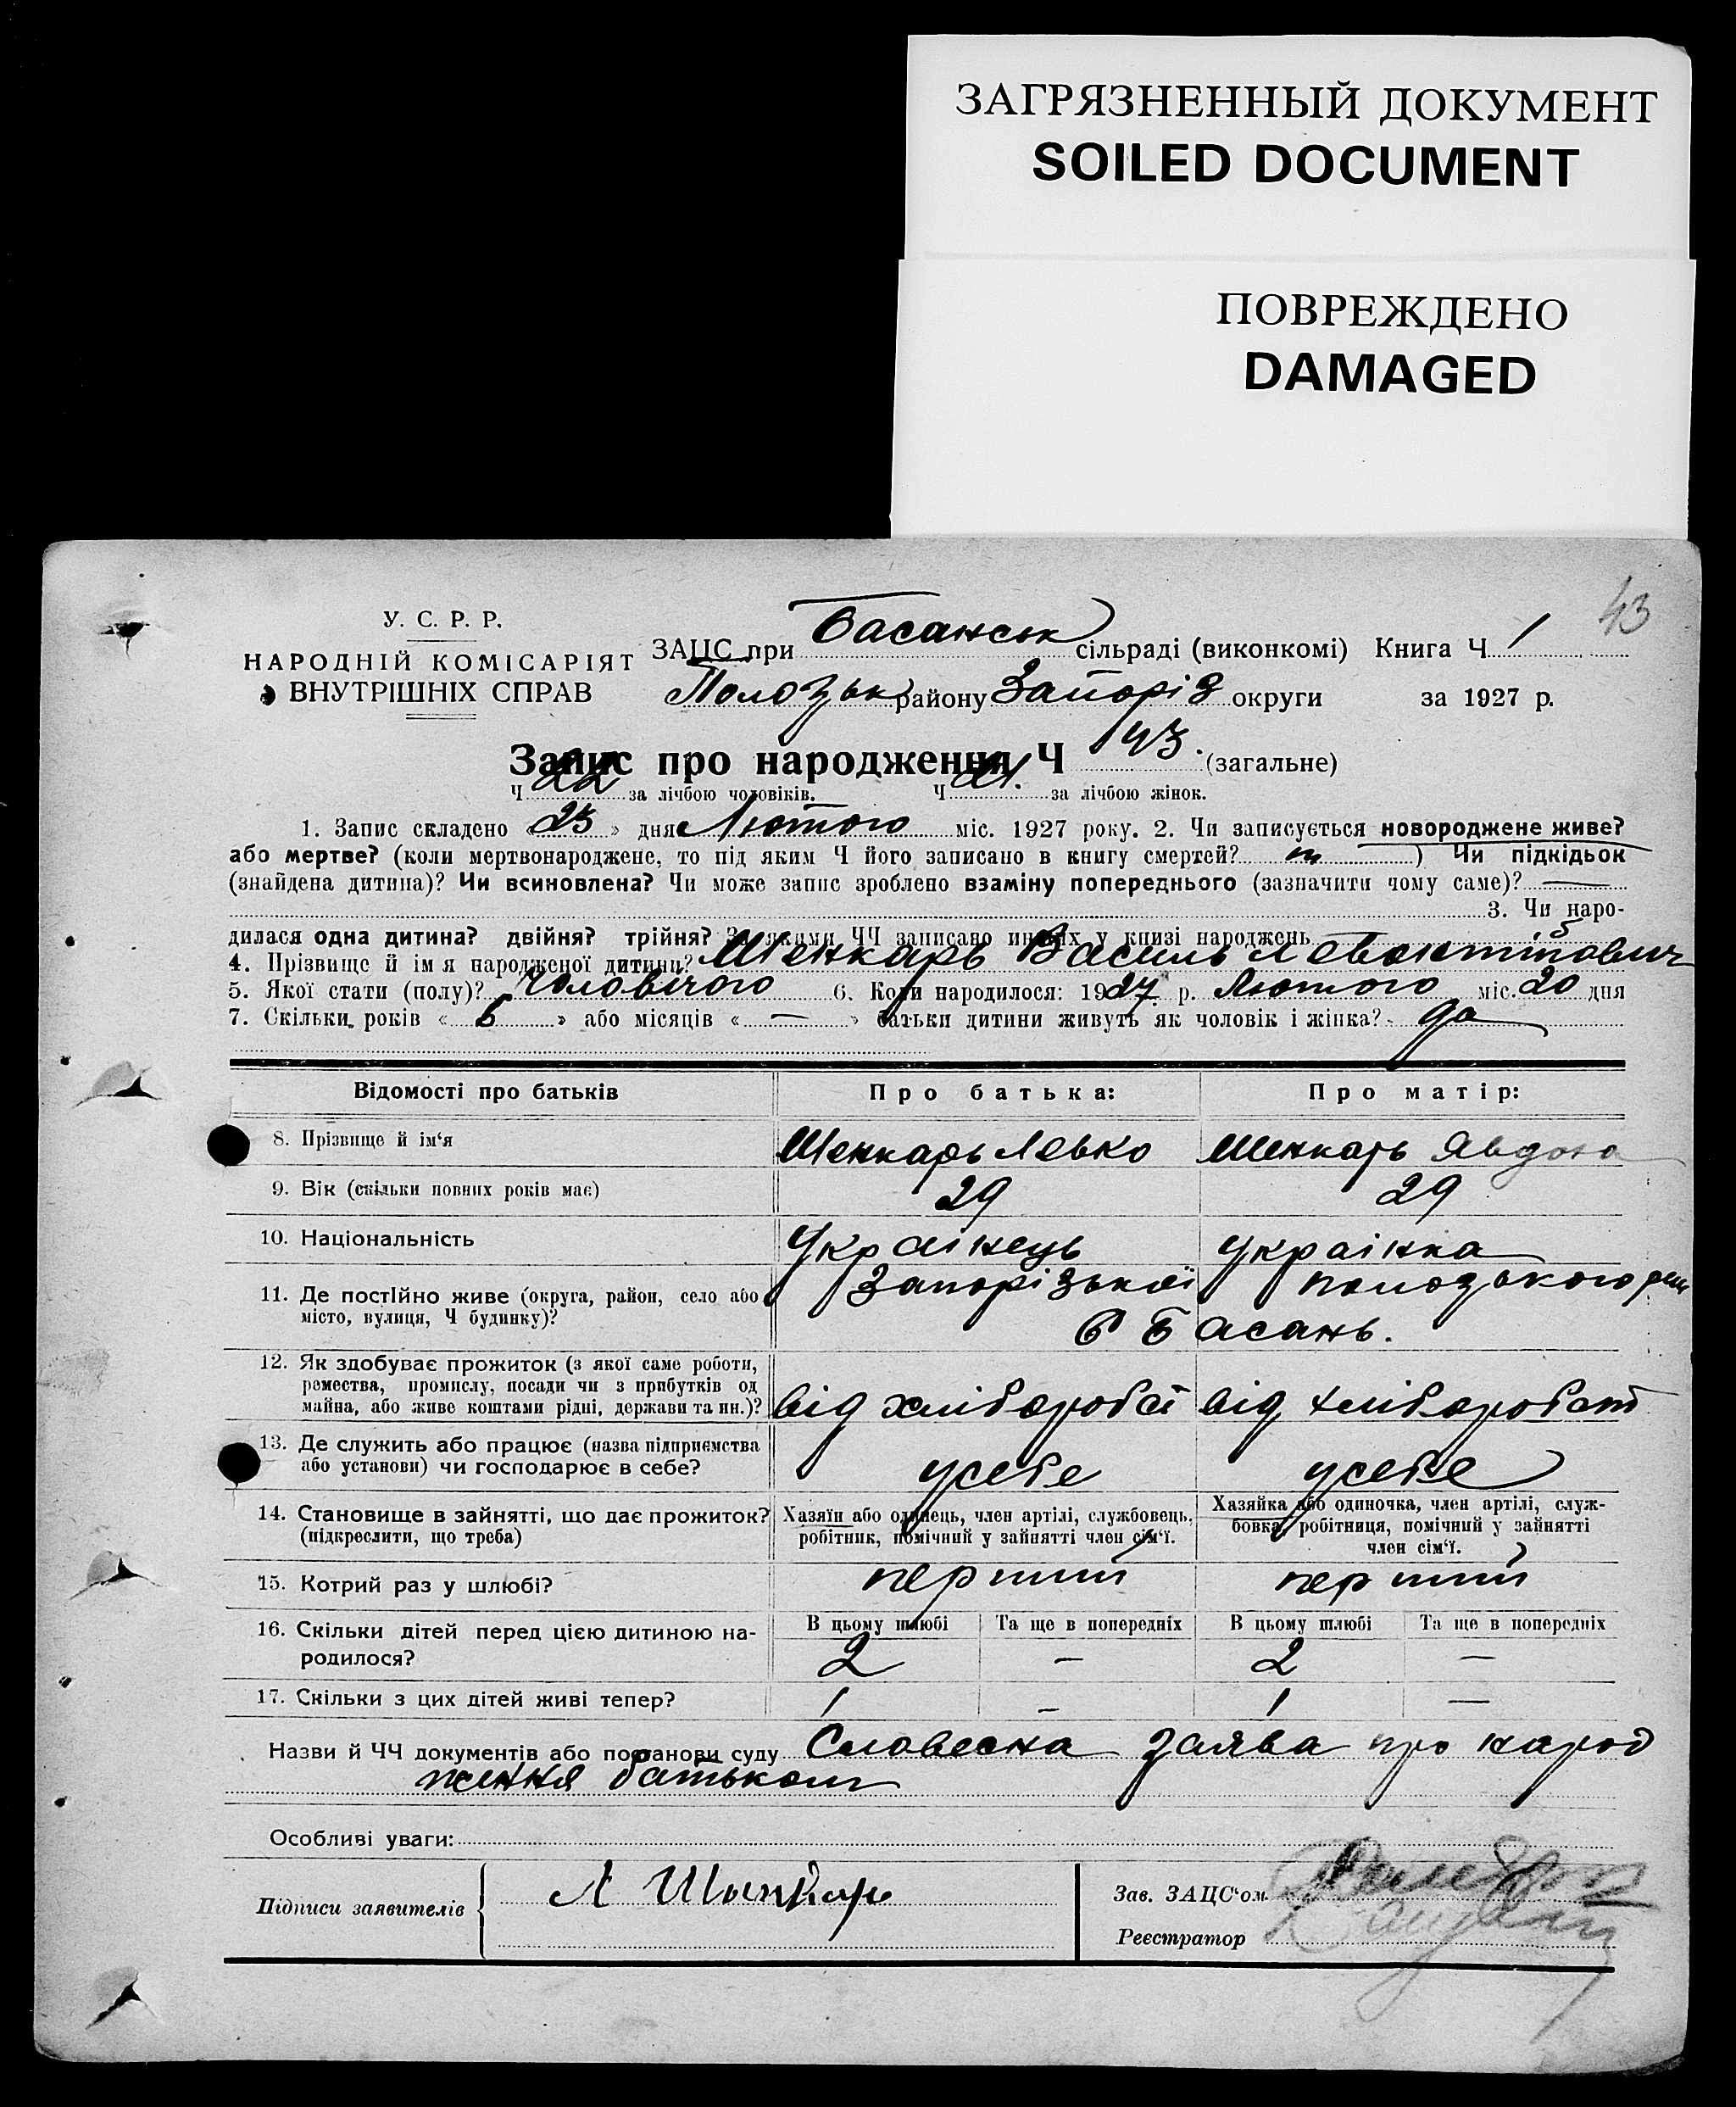 ЗАГРЯЗНЕННЫЙ ДОКУМЕНТ
SOILED DOCUMENT
ПОВРЕЖДЕНО
DAMAGED
43
У. С. Р. Р.
НАРОДНІЙ КОМІСАРІЯТ
ВНУТРІШНІХ СПРАВ
ЗАЦС при Басанськ сільраді (виконкомі) Книга Ч 1
Полозьк району Запоріз округи за 1927 р.
Запис про народження Ч 43. (загальне)
Ч 22 за лічбою чоловіків. Ч 21. за лічбою жінок.
1. Запис складено « 23 » дня Лютого міс. 1927 року. 2. Чи записується новороджене живе?
або мертве? (коли мертвонароджене, то під яким Ч його записано в книгу смертей? ) Чи підкідьок
(знайдена дитина)? Чи всиновлена? Чи може запис зроблено взаміну попереднього (зазначити чому саме)? —
3. Чи наро-
дилася одна дитина? двійня? трійня? За якими ЧЧ записано инших у книзі народжень
4. Прізвище й ім я народженої дитини? Шенкарь Василь Левонтійович
5. Якої стати (полу)? Чоловічого 6. Коли народилося: 1927 р. Лютого міс. 20 дня
7. Скільки років « 6 » або місяців « — » батьки дитини живуть як чоловік і жінка? да
Відомості про батьків Про батька: Про матір:
8. Прізвище й ім‘я Шенкарь Левко Шенкарь Явдоха
9. Вік (скільки повних років має) 29 29
10. Національність Українець Українка
11. Де постійно живе (округа, район, село або Запорізької Полозького рай
місто, вулиця, Ч будинку)? б Басань.
12. Як здобуває прожиток (з якої саме роботи,
ремества, промислу, посади чи з прибутків од
майна, або живе коштами рідні, держави та ин.)? від хліборобст від хліборобст
13. Де служить або працює (назва підприємства
або установи) чи господарює в себе? усебе усебе
14. Становище в зайнятті, що дає прожиток? Хазяїн або одинець, член артілі, службовець, Хазяйка або одиночка, член артілі, служ-
(підкреслити, що треба) робітник, помічний у зайнятті член сім‘ї. бовка, робітниця, помічний у зайнятті
член сім‘ї.
15. Котрий раз у шлюбі? перший перший
16. Скільки дітей перед цією дитиною на- В цьому шлюбі Та ще в попередніх В цьому шлюбі Та ще в попередніх
родилося? 2 — 2 —
17. Скільки з цих дітей живі тепер? 1 — 1 —
Назви й ЧЧ документів або постанови суду Словесна заява про народ
ження батьком
Особливі уваги:
Підписи заявителів Л Шинкарь
Зав. ЗАЦС‘ом
Реєстратор